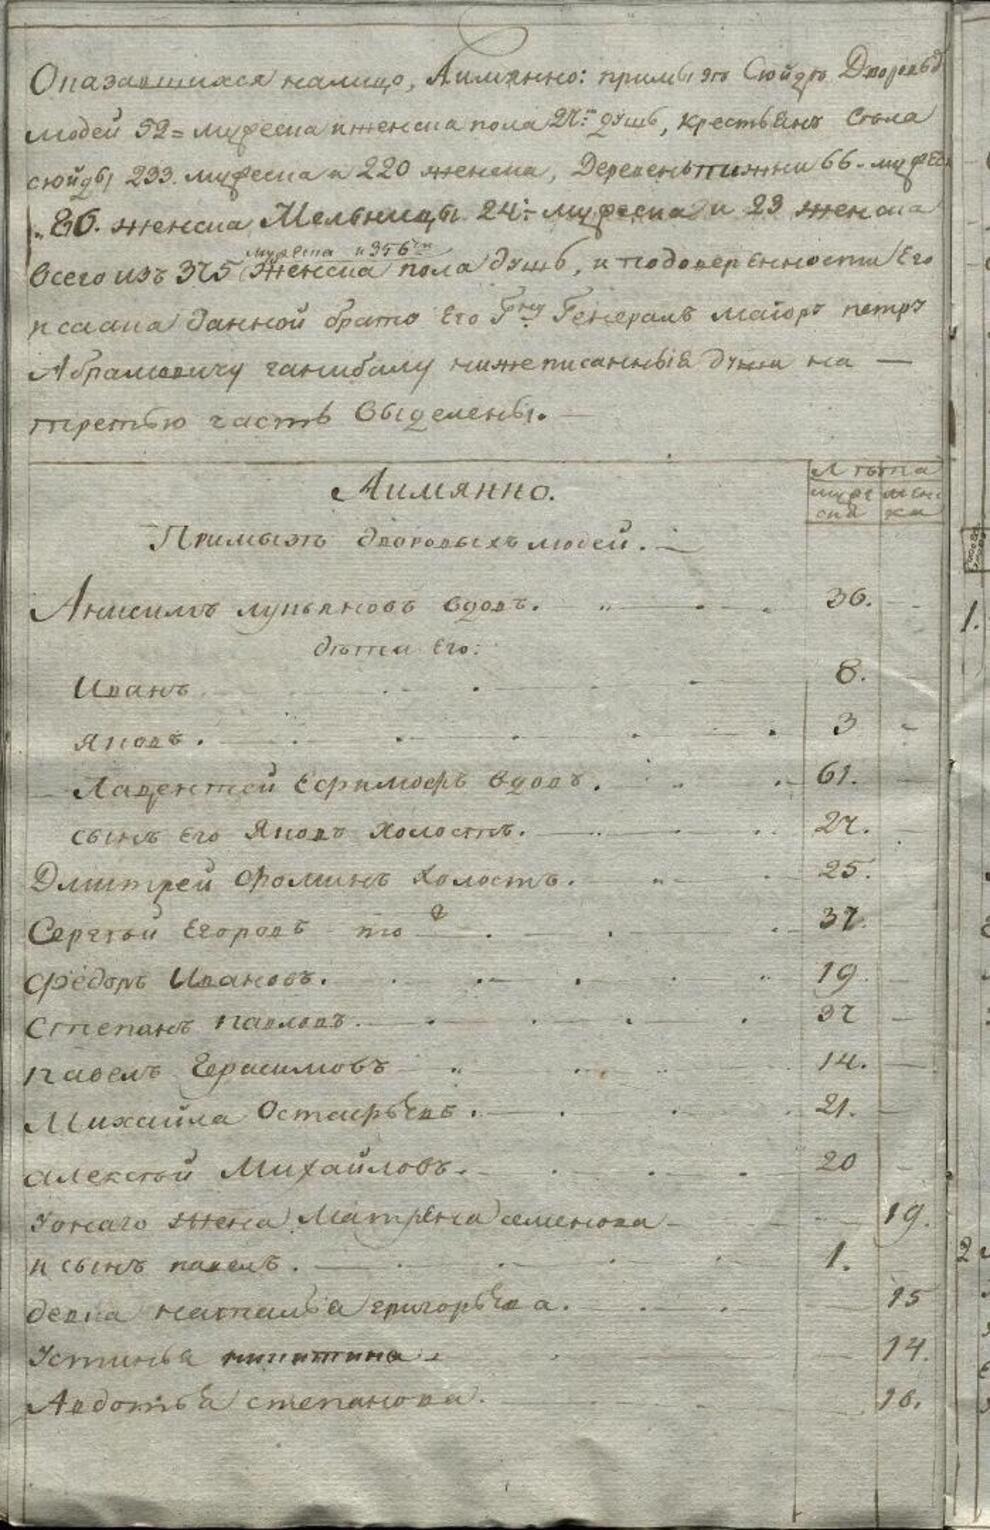 Оказавшихся налицо, Аимянно: примызъ Сюйдъ Дворовы
людей 52= мужеска иженска пола 27:" душъ, крестьянъ Села
сюйды 233. мужеска и 220 женска, Деревень 66 - мужеск
80. женска Мельницы 24:- мужеска и 23 женска
мужеска и 356ти
Всего изъ 375 женска пола душъ, и подоверенности Его
писана данной брату Его Гну Генералъ маіоръ петръ
Абрамовичу ганибалу нижеписанныя души на —
третью часть выделены. —
Лъта
Аимянно.
муже ска
жен ска
Примызъ дворовыхъ людей. —
Анисимъ лукьяновъ вдовъ. 36.
дъти его:
Иванъ 8.
яковъ. 3
Лаврентей Ефимофъ вдовъ. 61.
сынъ его яковъ холостъ. 27.
Дмитрей Фоминъ холостъ. 25.
Сергъй Егоровъ то ж 37.
Федоръ Ивановъ. 19
Степанъ павловъ. 37
павелъ Герасимовъ 14.
Михайла Остафьевъ. 21.
алексъй Михайловъ. 20
Уонаго жена Матрена семенова 19.
и сынъ павелъ. 1.
девка наталья григорьева. 15
Устинья никитина 14.
Авдотья степанова. 16.
1.
2